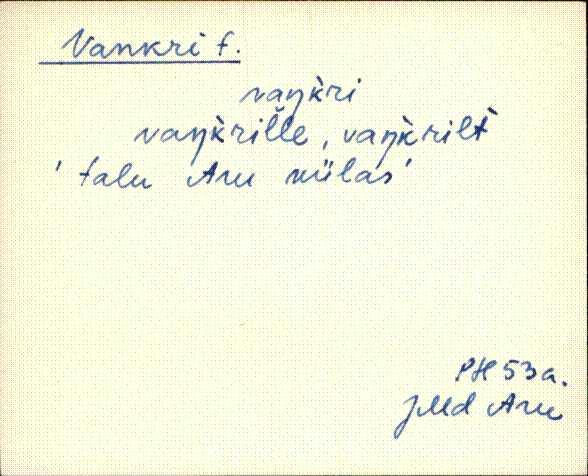 Vankri t.
vaŋk̀ri
vaŋk̀rille, vaŋk̀rilt̀
' talu Aru külas'
PH 53a.
JMd Aru